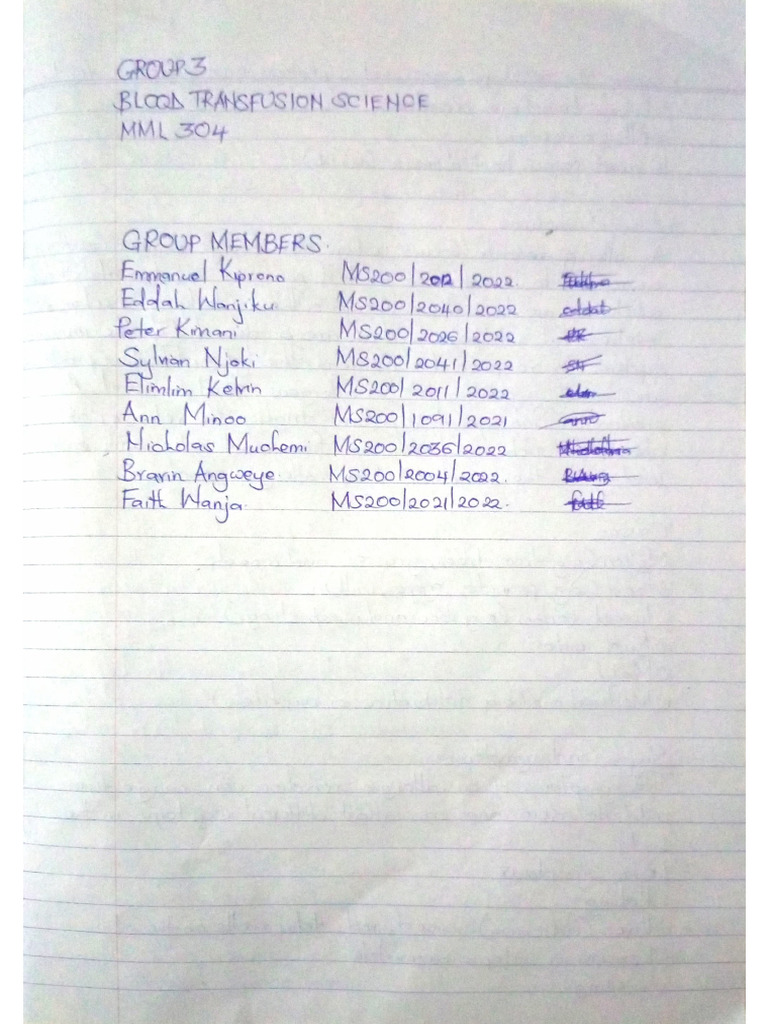 GROUP 3
BLOOD TRANSFUSION SCIENCE
MML 304
GROUP MEMBERS.
Emmanuel Kiprono MS200/2012/2022.
Eddah Wanjiku MS200/2040/2022
Peter Kimani MS200/2026/2022
Sylvian Njoki MS200/2041/2022
Elimlim Kelvin MS200/2011/2022
Ann Minoo MS200/1091/2021
Nicholas Muchemi MS200/2036/2022
Bravin Angweye. MS200/2004/2022.
Faith Wanja. MS200/2021/2022.